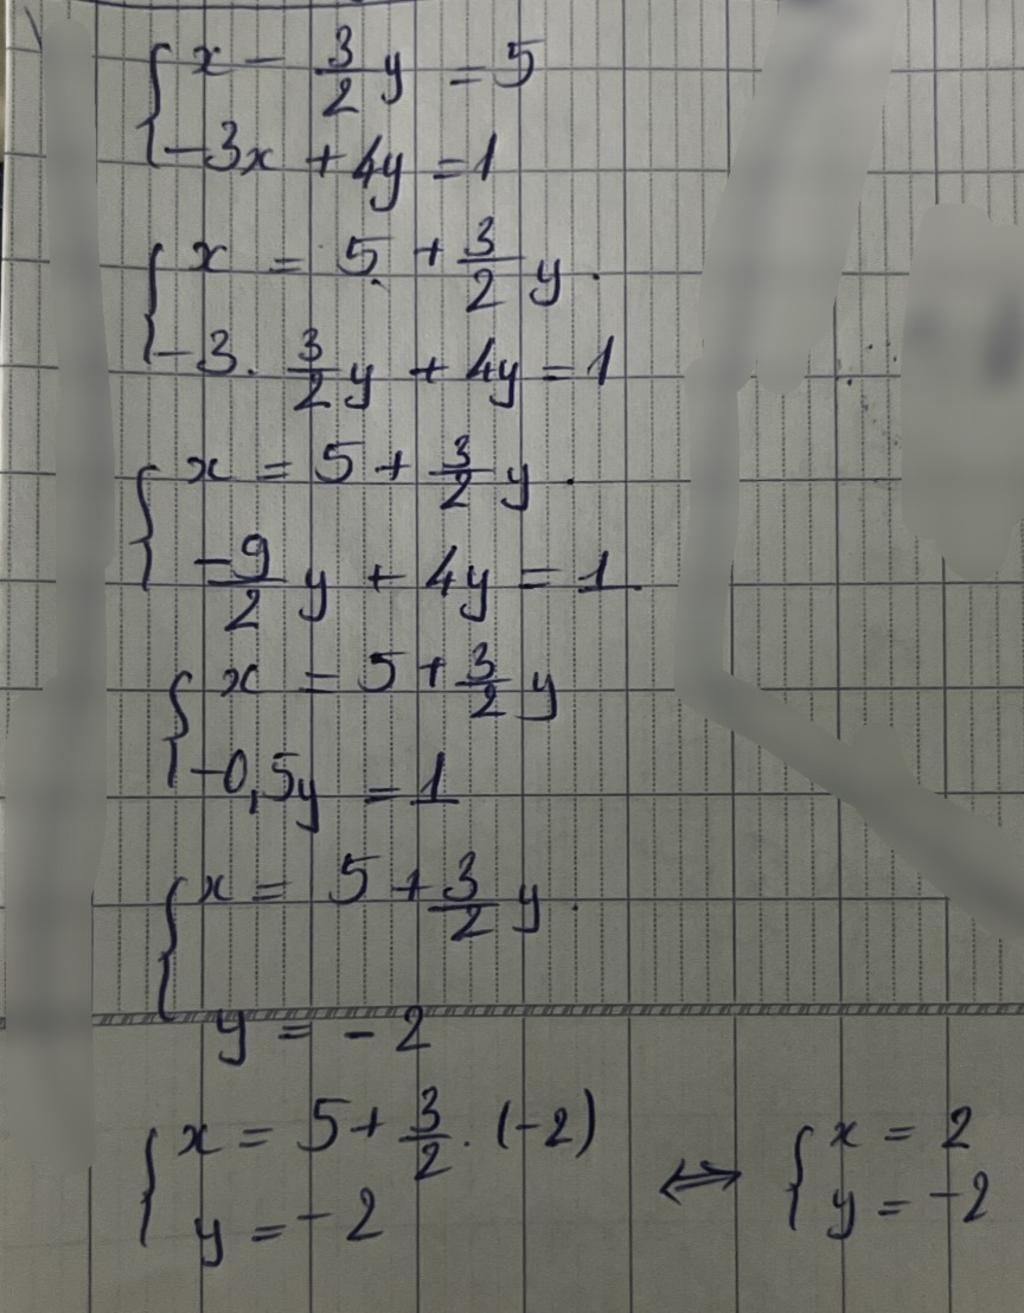 { x - 3/2 y = 5
-3x + 4y = 1
{ x = 5 + 3/2 y.
-3. 3/2 y + 4y = 1
{ x = 5 + 3/2 y.
-9/2 y + 4y = 1
{ x = 5 + 3/2 y
-0,5y = 1
{ x = 5 + 3/2 y.
y = -2
{ x = 5 + 3/2 . (-2) ⇔ { x = 2
y = -2 y = -2